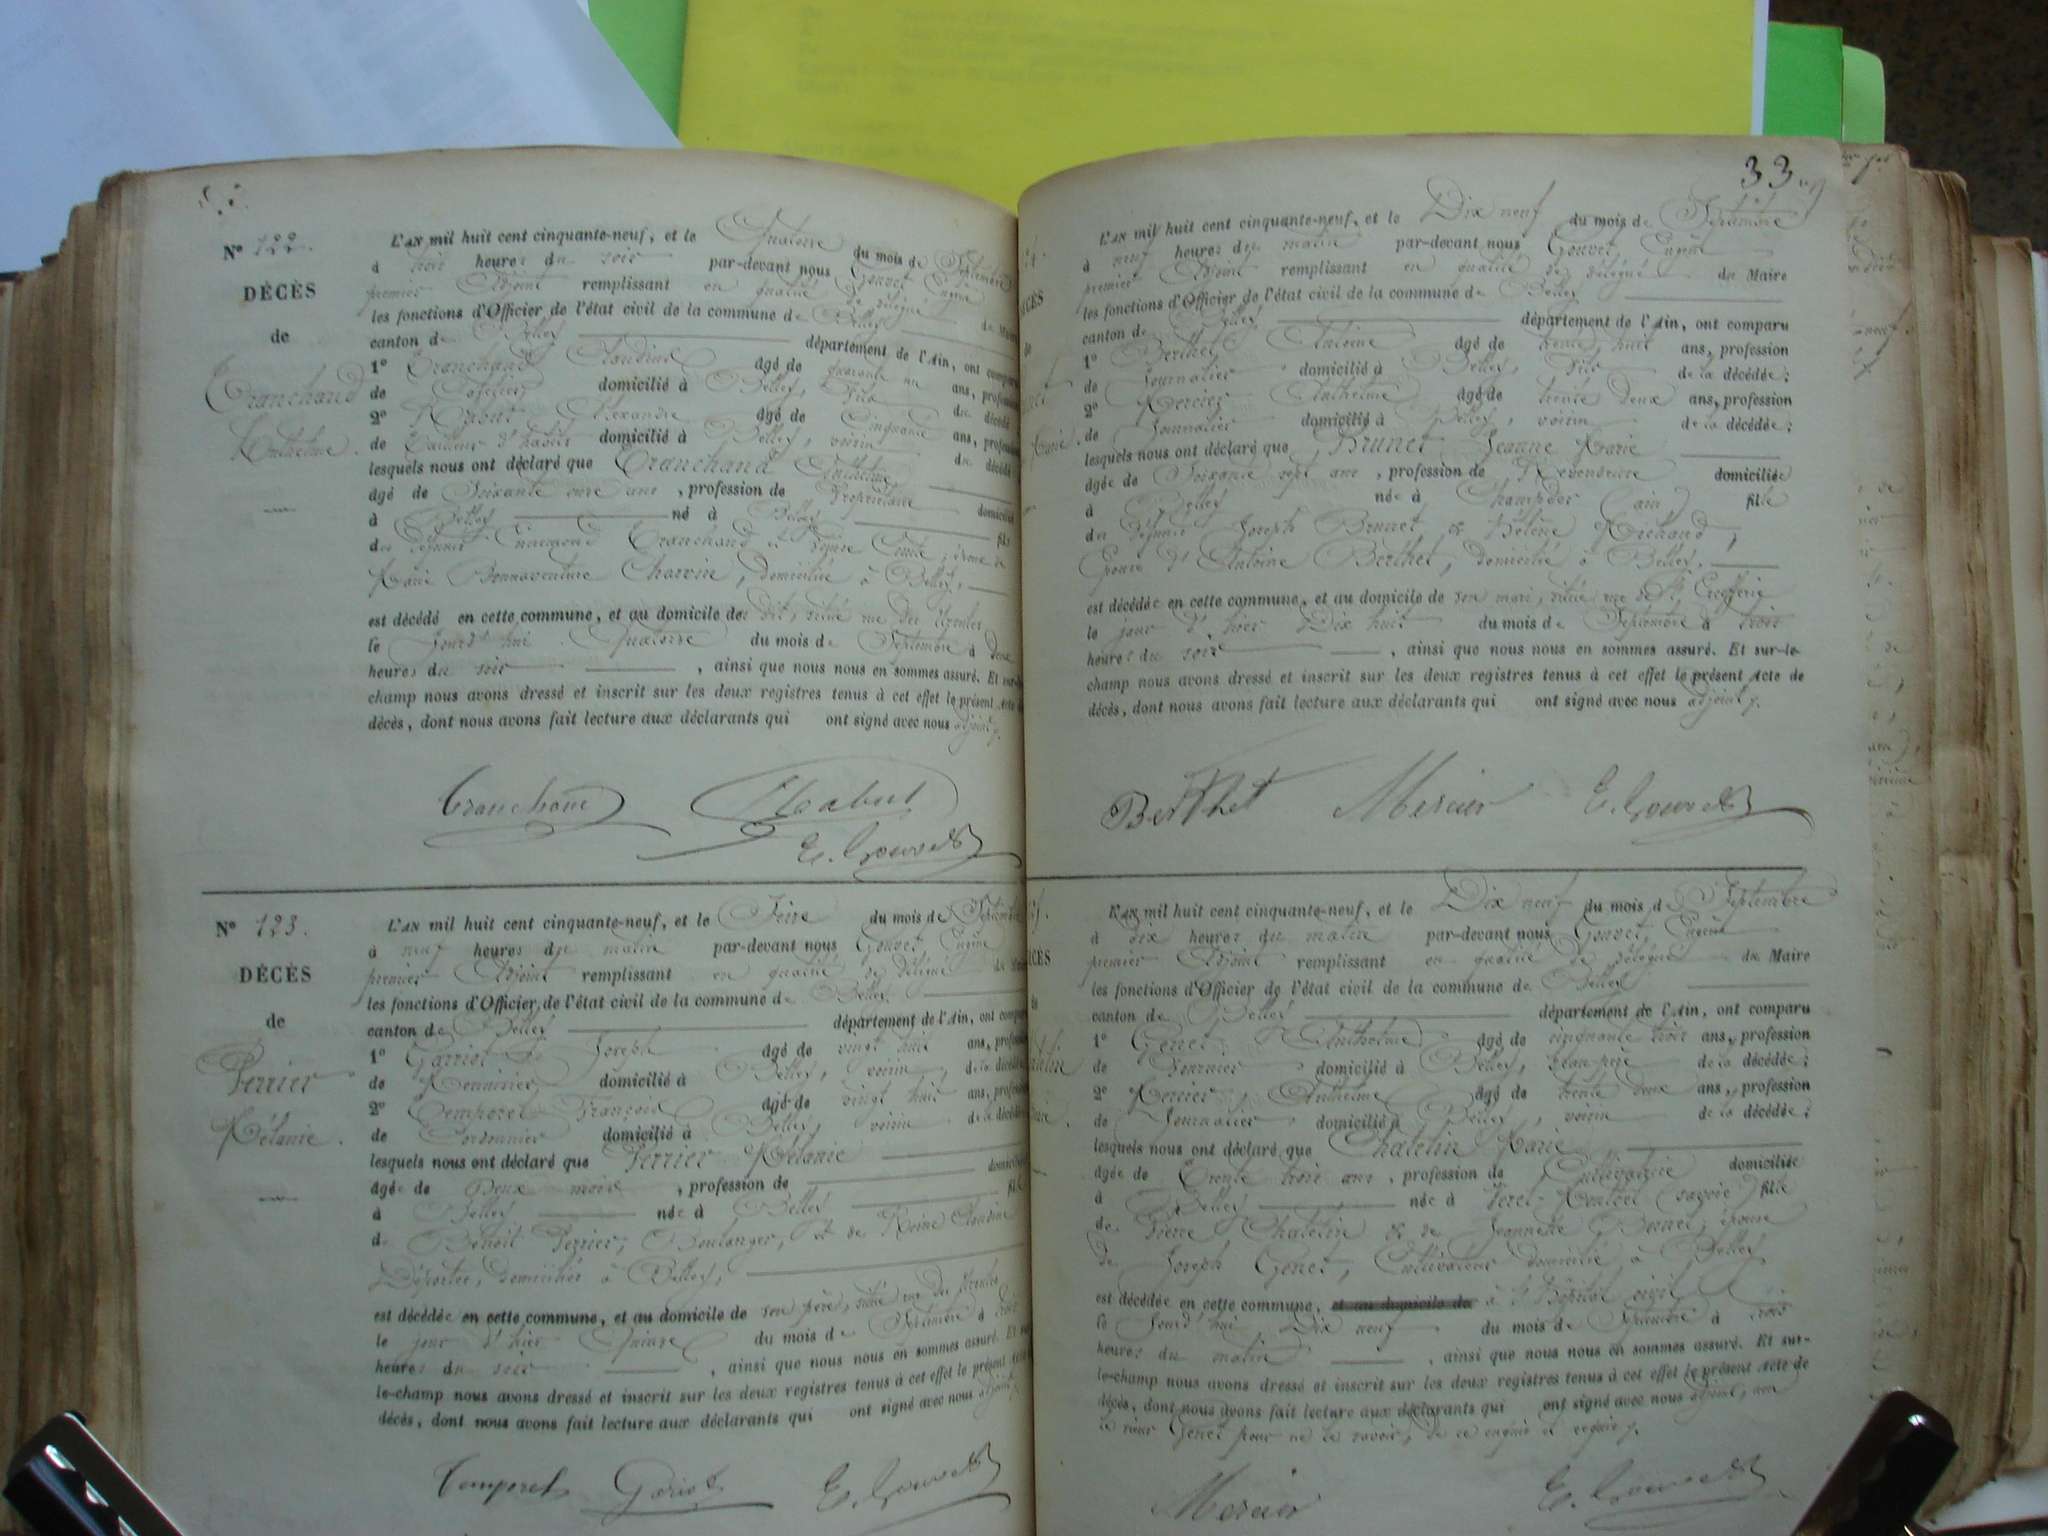 N° 122.
DÉCÈS
de
Tranchand
Anthelme.
L'AN mil huit cent cinquante-neuf, et le Quatorze du mois de Septembre
à trois heures du soir par-devant nous Gouvet Eugène
premier Adjoint remplissant en qualité de délégué du Maire
les fonctions d'Officier de l'état civil de la commune de Belley
canton de Belley département de l'Ain, ont comparu
1° Tranchand Claudius âgé de quarante un ans, profession
de domicilié à Belley, fils du décédé
2° Alexandre âgé de Cinquante ans, profession
de Tailleur d'habits domicilié à Belley, voisin du décédé
lesquels nous ont déclaré que Tranchand Anthelme,
âgé de Soixante onze ans, profession de Propriétaire domicilié
à Belley né à Belley fils
des défunts Tranchand et Comte, époux de
Marie Bonnaventure Charvin, domicilié à Belley,
est décédé en cette commune, et au domicile de
le Jourd'hui Quatorze du mois de Septembre à deux
heures du soir, ainsi que nous nous en sommes assuré. Et sur-le-
champ nous avons dressé et inscrit sur les deux registres tenus à cet effet le présent Acte de
décès, dont nous avons fait lecture aux déclarants qui ont signé avec nous adjoint
Tranchand
E. Gouvet
N° 123.
DÉCÈS
de
Perrier
Mélanie.
L'AN mil huit cent cinquante-neuf, et le Seize du mois de Septembre
à neuf heures du matin par-devant nous Gouvet, Eugène
premier Adjoint remplissant en qualité de délégué du Maire
les fonctions d'Officier de l'état civil de la commune de Belley
canton de Belley département de l'Ain, ont comparu
1° Joseph âgé de vingt huit ans, profession
de Menuisier domicilié à Belley, voisin de la décédée
2° Temporel François âgé de vingt huit ans, profession
de Cordonnier domicilié à Belley, voisin de la décédée
lesquels nous ont déclaré que Perrier Mélanie
âgée de Deux mois, profession de domiciliée
à Belley née à Belley fille
de Benoit Perrier, Boulanger, et de Reine Claudine
domiciliés à Belley,
est décédée en cette commune, et au domicile de son père, située rue des
le jour d'hier Quinze du mois de Septembre à trois
heures du soir, ainsi que nous nous en sommes assuré. Et sur-
le-champ nous avons dressé et inscrit sur les deux registres tenus à cet effet le présent Acte de
décès, dont nous avons fait lecture aux déclarants qui ont signé avec nous adjoint
Temporel Gariot E. Gouvet
33
L'AN mil huit cent cinquante-neuf, et le Dix neuf du mois de Septembre
à neuf heures du matin par-devant nous Gouvet Eugène
premier Adjoint remplissant en qualité de délégué du Maire
les fonctions d'Officier de l'état civil de la commune de Belley
canton de Belley département de l'Ain, ont comparu
1° Berthet Antoine âgé de trente huit ans, profession
de Journalier domicilié à Belley, fils de la décédée;
2° Mercier Anthelme âgé de trente deux ans, profession
de Journalier domicilié à Belley, voisin de la décédée;
lesquels nous ont déclaré que Brunet Jeanne Marie
âgée de Soixante sept ans, profession de Revendeuse domiciliée
à Belley née à Champdor (Ain,) fille
des défunts Joseph Brunet & Hélène Michaud,
Epouse d'Antoine Berthet, domicilié à Belley,
est décédée en cette commune, et au domicile de son mari, située rue de
le jour d'hier Dix huit du mois de Septembre à trois
heures du soir, ainsi que nous nous en sommes assuré. Et sur-le-
champ nous avons dressé et inscrit sur les deux registres tenus à cet effet le présent Acte de
décès, dont nous avons fait lecture aux déclarants qui ont signé avec nous adjoint
Berthet Mercier E. Gouvet
L'AN mil huit cent cinquante-neuf, et le Dix neuf du mois de Septembre
à dix heures du matin par-devant nous Gouvet, Eugène
premier Adjoint remplissant en qualité de délégué du Maire
les fonctions d'Officier de l'état civil de la commune de Belley
canton de Belley département de l'Ain, ont comparu
1° Genet, Anthelme âgé de cinquante trois ans, profession
de Journalier domicilié à Belley, beau-père de la décédée;
2° Mercier, Anthelme âgé de trente deux ans, profession
de Journalier domicilié à Belley, voisin de la décédée;
lesquels nous ont déclaré que Chatelin Marie
âgée de Trente trois ans, profession de Cultivatrice domiciliée
à Belley née à (Savoie) fille
de Pierre Chatelin & de Jeannette épouse
de Joseph Genet, Cultivateur domicilié à Belley
est décédée en cette commune, et au domicile de à l'Hôpital civil
le Jourd'hui Dix neuf du mois de Septembre à trois
heures du matin, ainsi que nous nous en sommes assuré. Et sur-
le-champ nous avons dressé et inscrit sur les deux registres tenus à cet effet le présent Acte de
décès, dont nous avons fait lecture aux déclarants qui ont signé avec nous adjoint, non
le sieur Genet pour ne le savoir, de ce enquis et requis
Mercier E. Gouvet